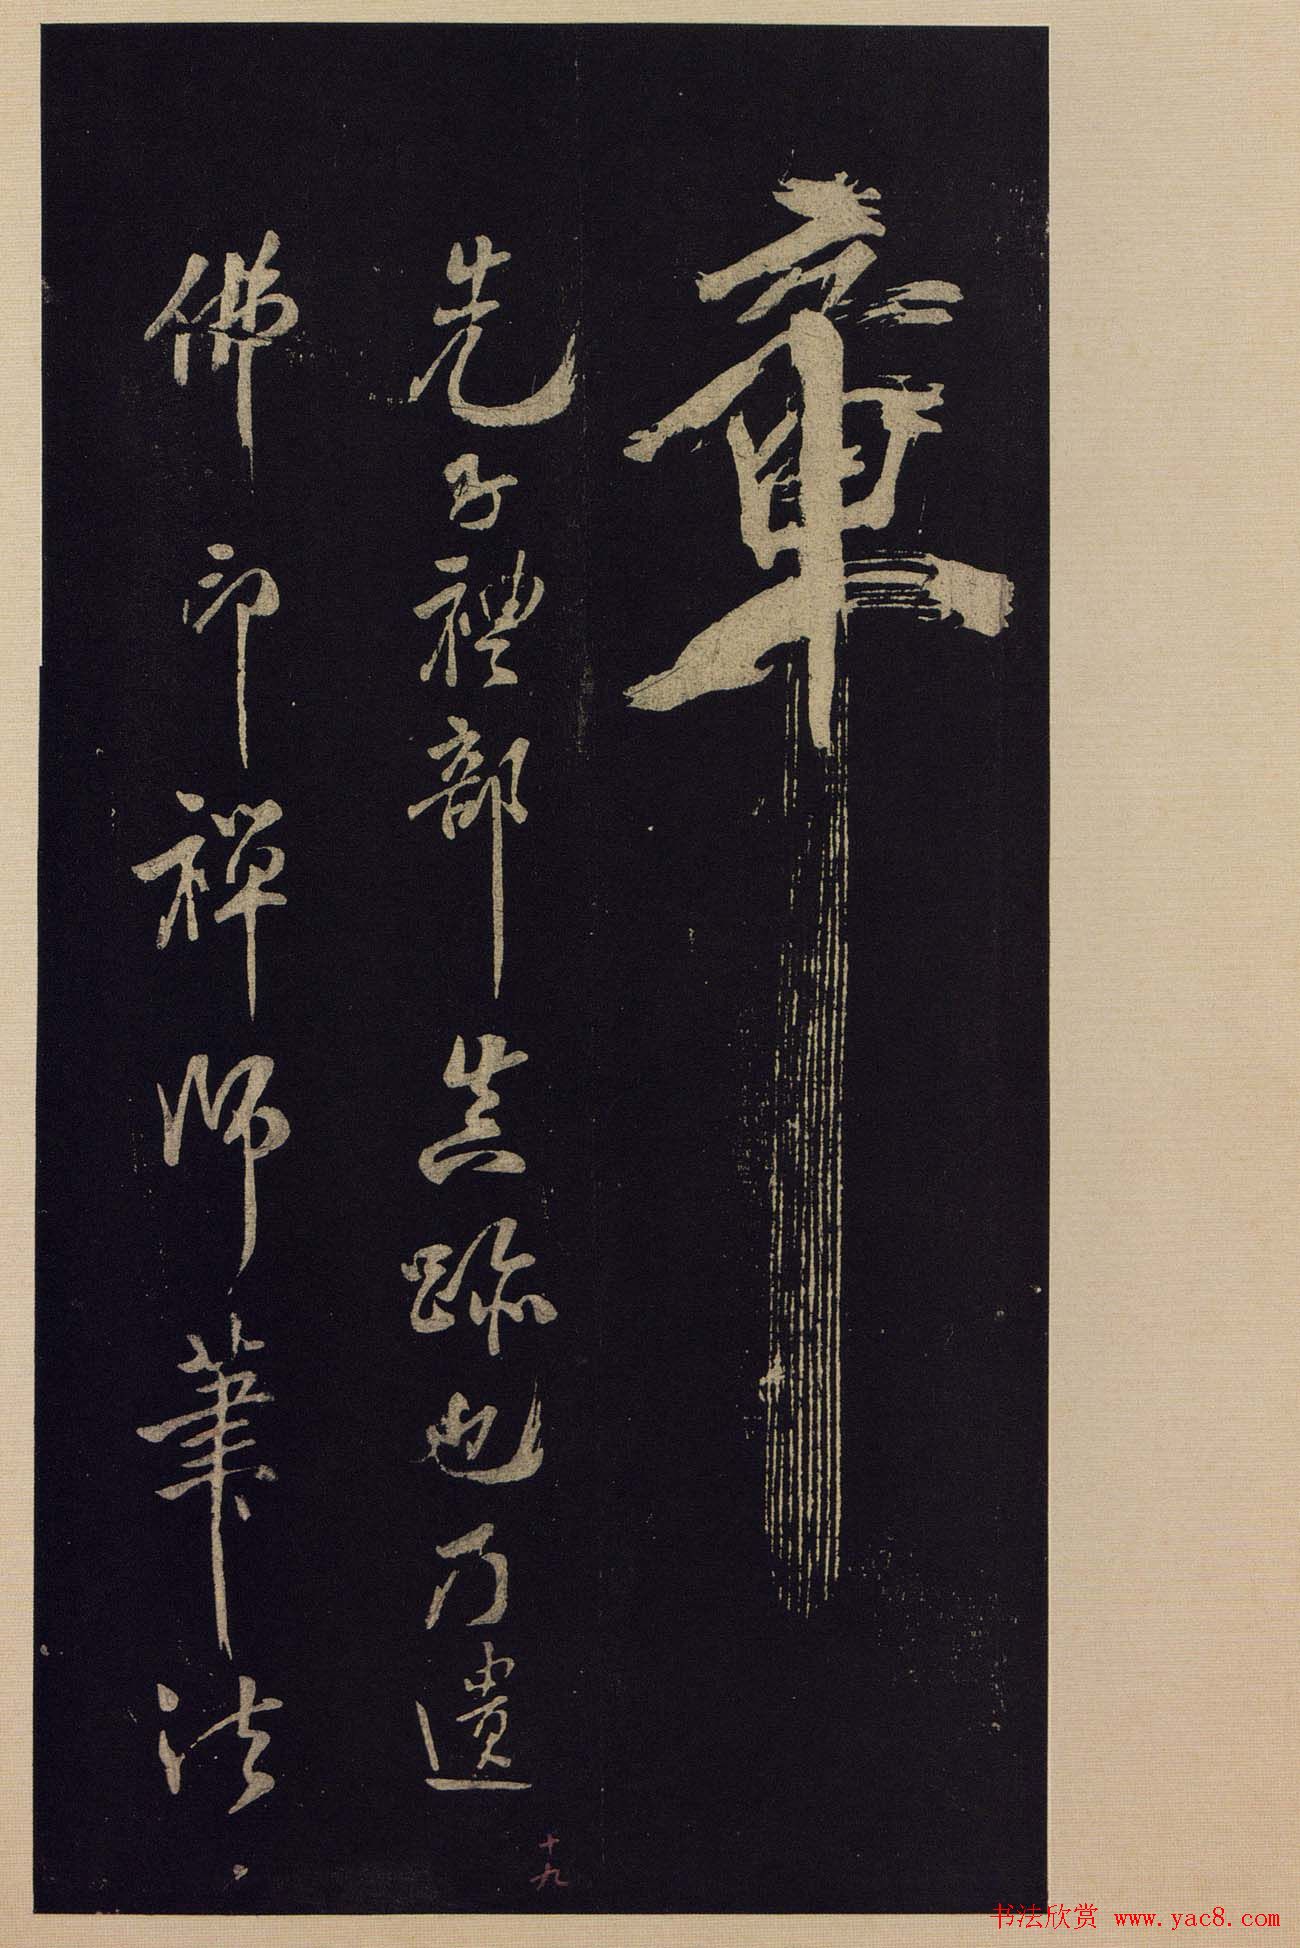 章
先子禮部真跡也乃遺
佛印禪師筆法
十九
书法欣赏 www.yac8.com